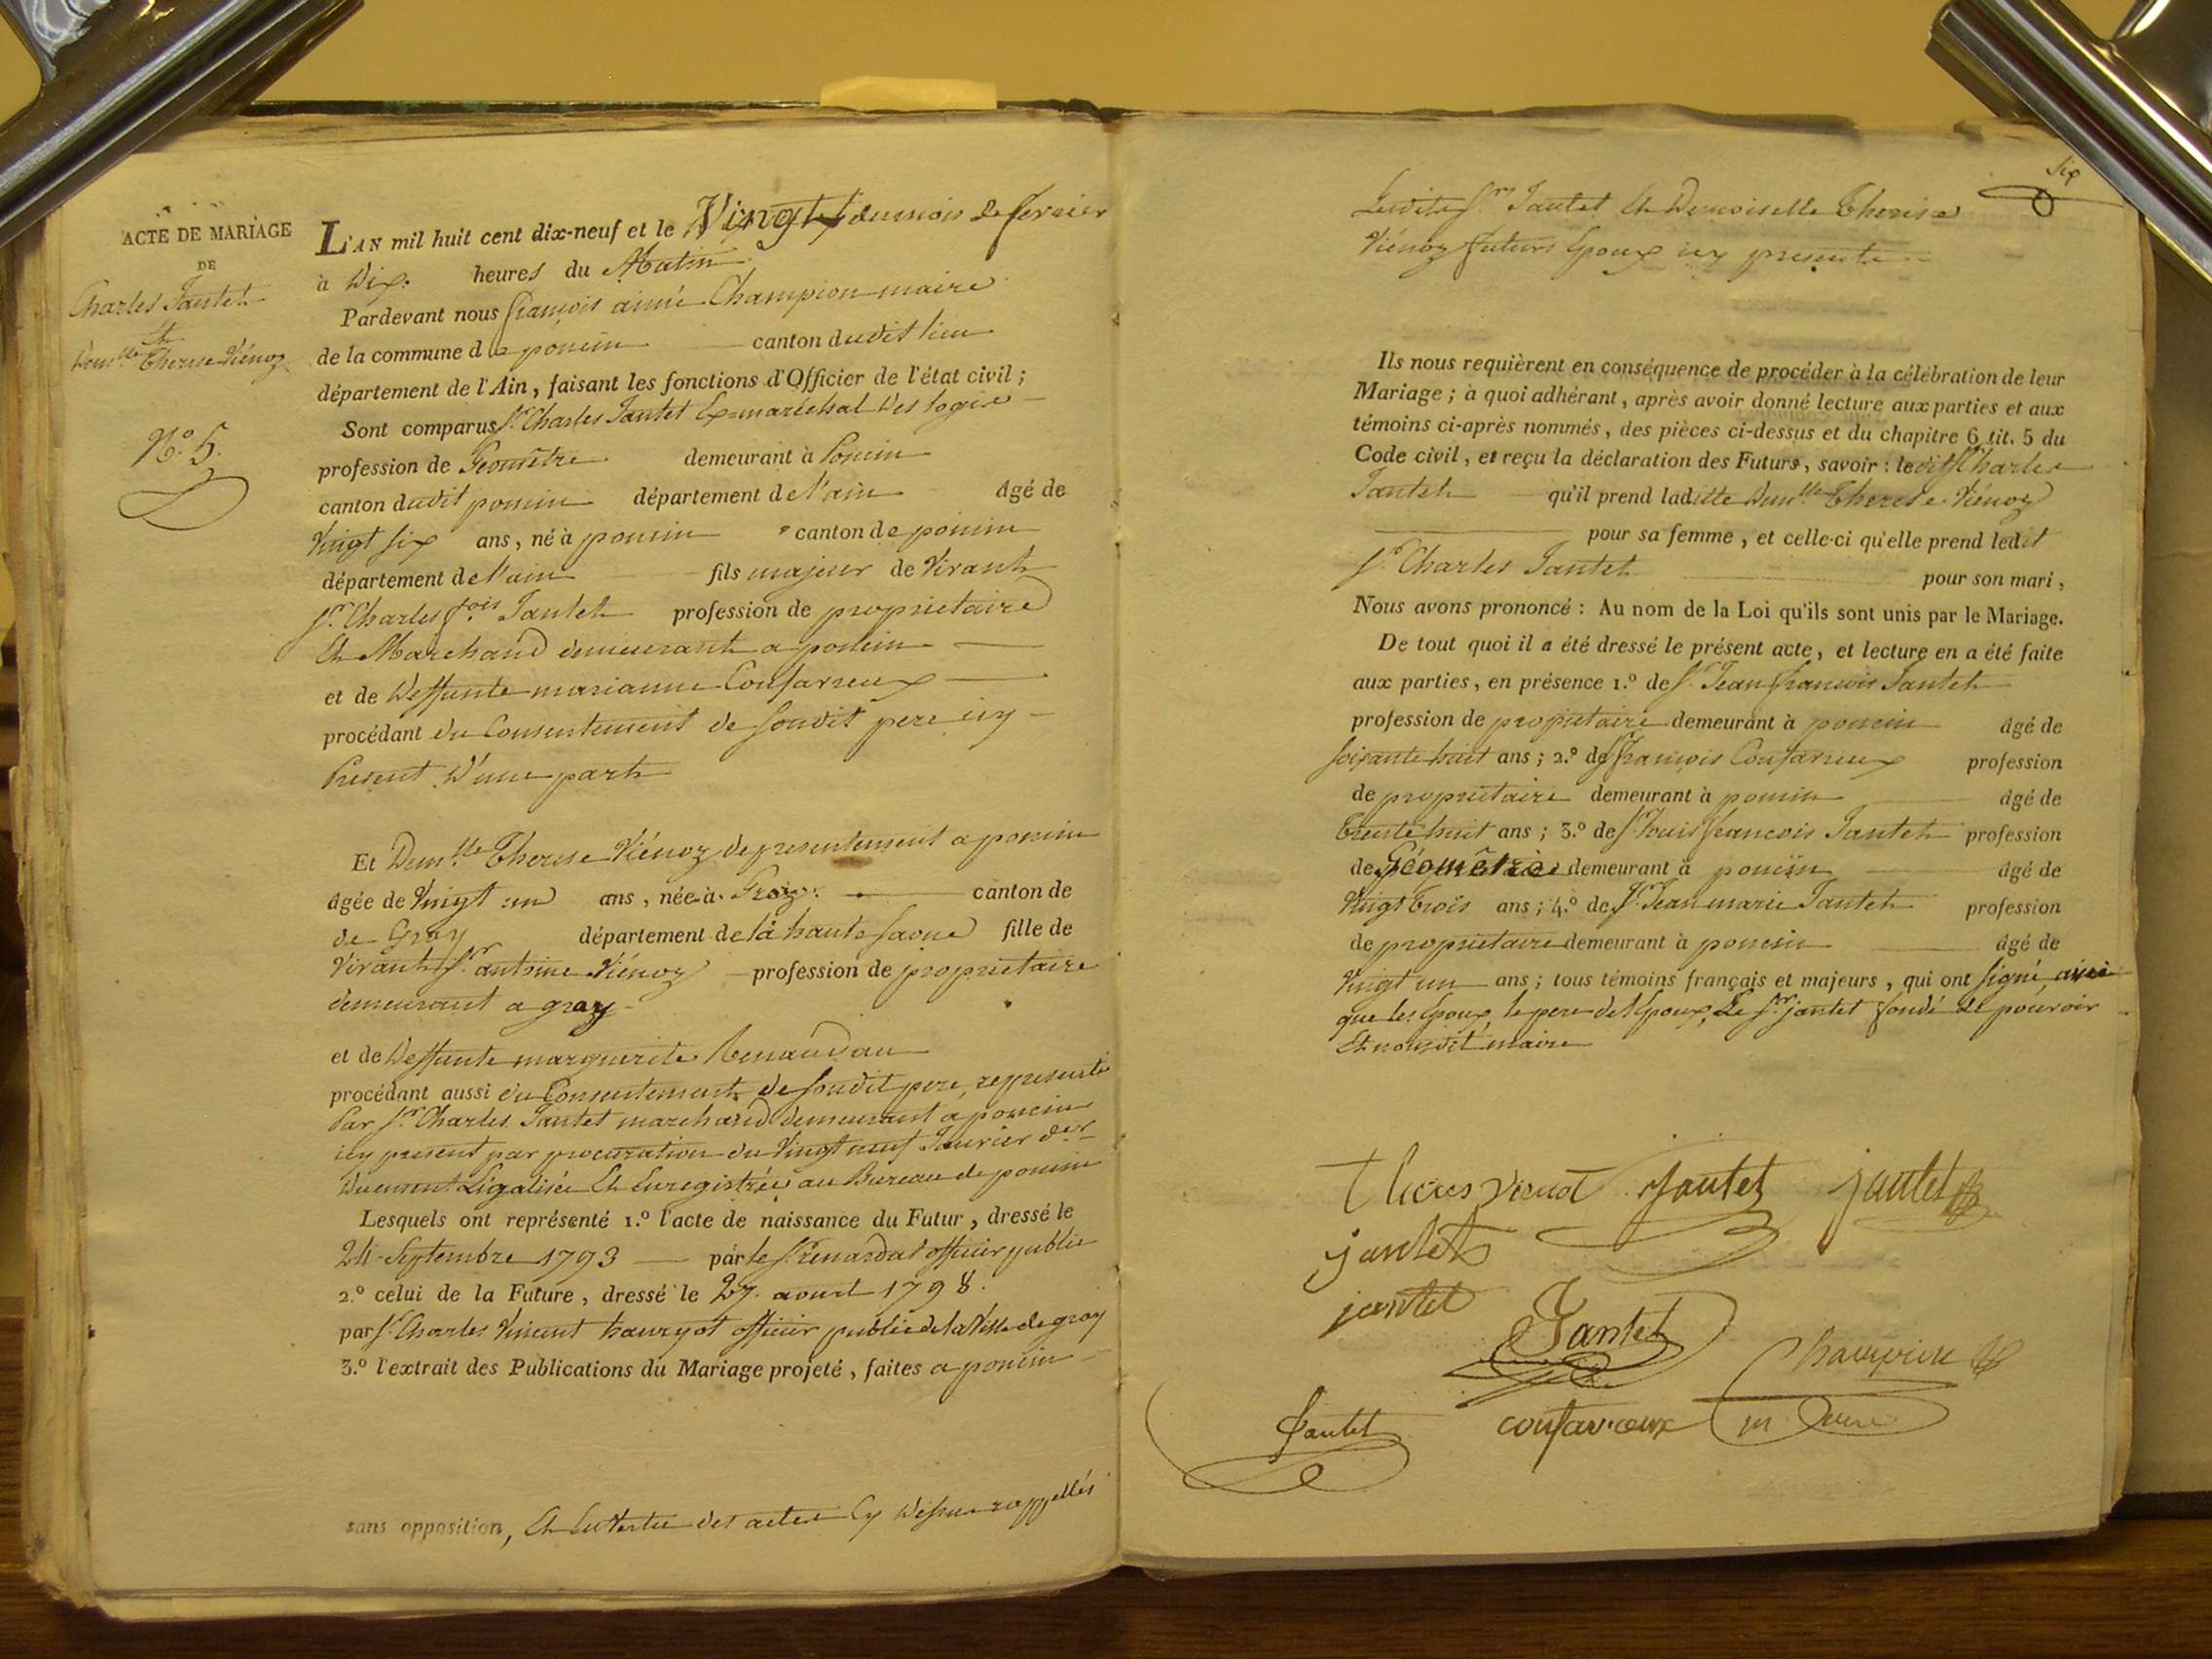 ACTE DE MARIAGE
DE
Charles Jantet
Et
Dem.lle Therese Viénoz
N.o 5.
L'AN mil huit cent dix-neuf et le Vingt du mois de fevrier
à Dix heures du Matin
Pardevant nous françois aimé Champion maire
de la commune de poncin canton dudit lieu
département de l'Ain, faisant les fonctions d'Officier de l'état civil;
Sont comparus S.r Charles Jantet Ex-maréchal des logis
profession de Géomètre demeurant à Poncin
canton dudit poncin département de l'ain âgé de
Vingt six ans, né à poncin canton de poncin
département de l'ain fils majeur de Vivant
S.r Charles f.ois Jantet profession de proprietaire
Et Marchand demeurant a poncin
et de Deffunte marianne Confavreux
procédant du Consentement de sondit pere icy
Present d'une part
Et Dem.lle Therese Viénoz de presentement a poncin
âgée de Vingt un ans, née à Gray canton de
de Gray département de la haute saone fille de
Vivant S.r antoine Viénoz profession de proprietaire
demeurant a gray
et de Deffunte marguerite Renaudan
procédant aussi du Consentement de sondit pere, representé
Par S.r Charles Jantet marchand demeurant a poncin
icy present par procuration du Vingt neuf Janvier d.er
Duement Légalisée Et Enregistrée au Bureau de poncin
Lesquels ont représenté 1.o l'acte de naissance du Futur, dressé le
24 Septembre 1793 par le S.r renardat officier public
2.o celui de la Future, dressé le 27. aoust 1798.
par S.r Charles Vincent officier public de la Ville de gray
3.o l'extrait des Publications du Mariage projeté, faites a poncin
sans opposition, Et En Vertu des actes Cy dessus rappellés
Six
Lesdits S.r Jantet Et Demoiselle Therese
Viénoz futurs Epoux icy presents
Ils nous requièrent en conséquence de procéder à la célébration de leur
Mariage; à quoi adhérant, après avoir donné lecture aux parties et aux
témoins ci-après nommés, des pièces ci-dessus et du chapitre 6 tit. 5 du
Code civil, et reçu la déclaration des Futurs, savoir: ledit S.r Charles
Jantet qu'il prend laditte Dem.lle Therese Viénoz
pour sa femme, et celle-ci qu'elle prend ledit
S.r Charles Jantet pour son mari,
Nous avons prononcé: Au nom de la Loi qu'ils sont unis par le Mariage.
De tout quoi il a été dressé le présent acte, et lecture en a été faite
aux parties, en présence 1.o de S.r Jean françois Jantet
profession de propriétaire demeurant à poncin âgé de
soixante huit ans; 2.o de S.r françois Confavreux profession
de proprietaire demeurant à poncin âgé de
trente huit ans; 3.o de S.r Louis françois Jantet profession
de Géomètre demeurant à poncin âgé de
Vingt trois ans; 4.o de S.r Jean marie Jantet profession
de proprietaire demeurant à poncin âgé de
Vingt un ans; tous témoins français et majeurs, qui ont signé, ainsi
que les Epoux, le pere de l'Epoux, Le S.r jantet fondé de pouvoir
Et nousdit maire
Jantet jantet
jantet
jantet
Jantet
Champion
Jantet confavreux